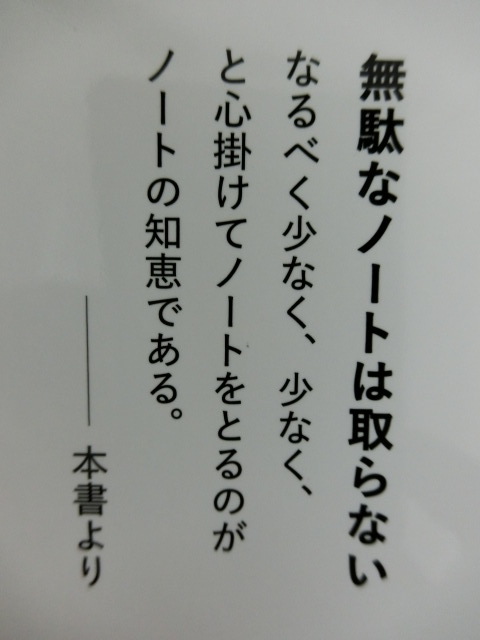 無駄なノートは取らない
なるべく少なく、少なく、
と心掛けてノートをとるのが
ノートの知恵である。
――本書より